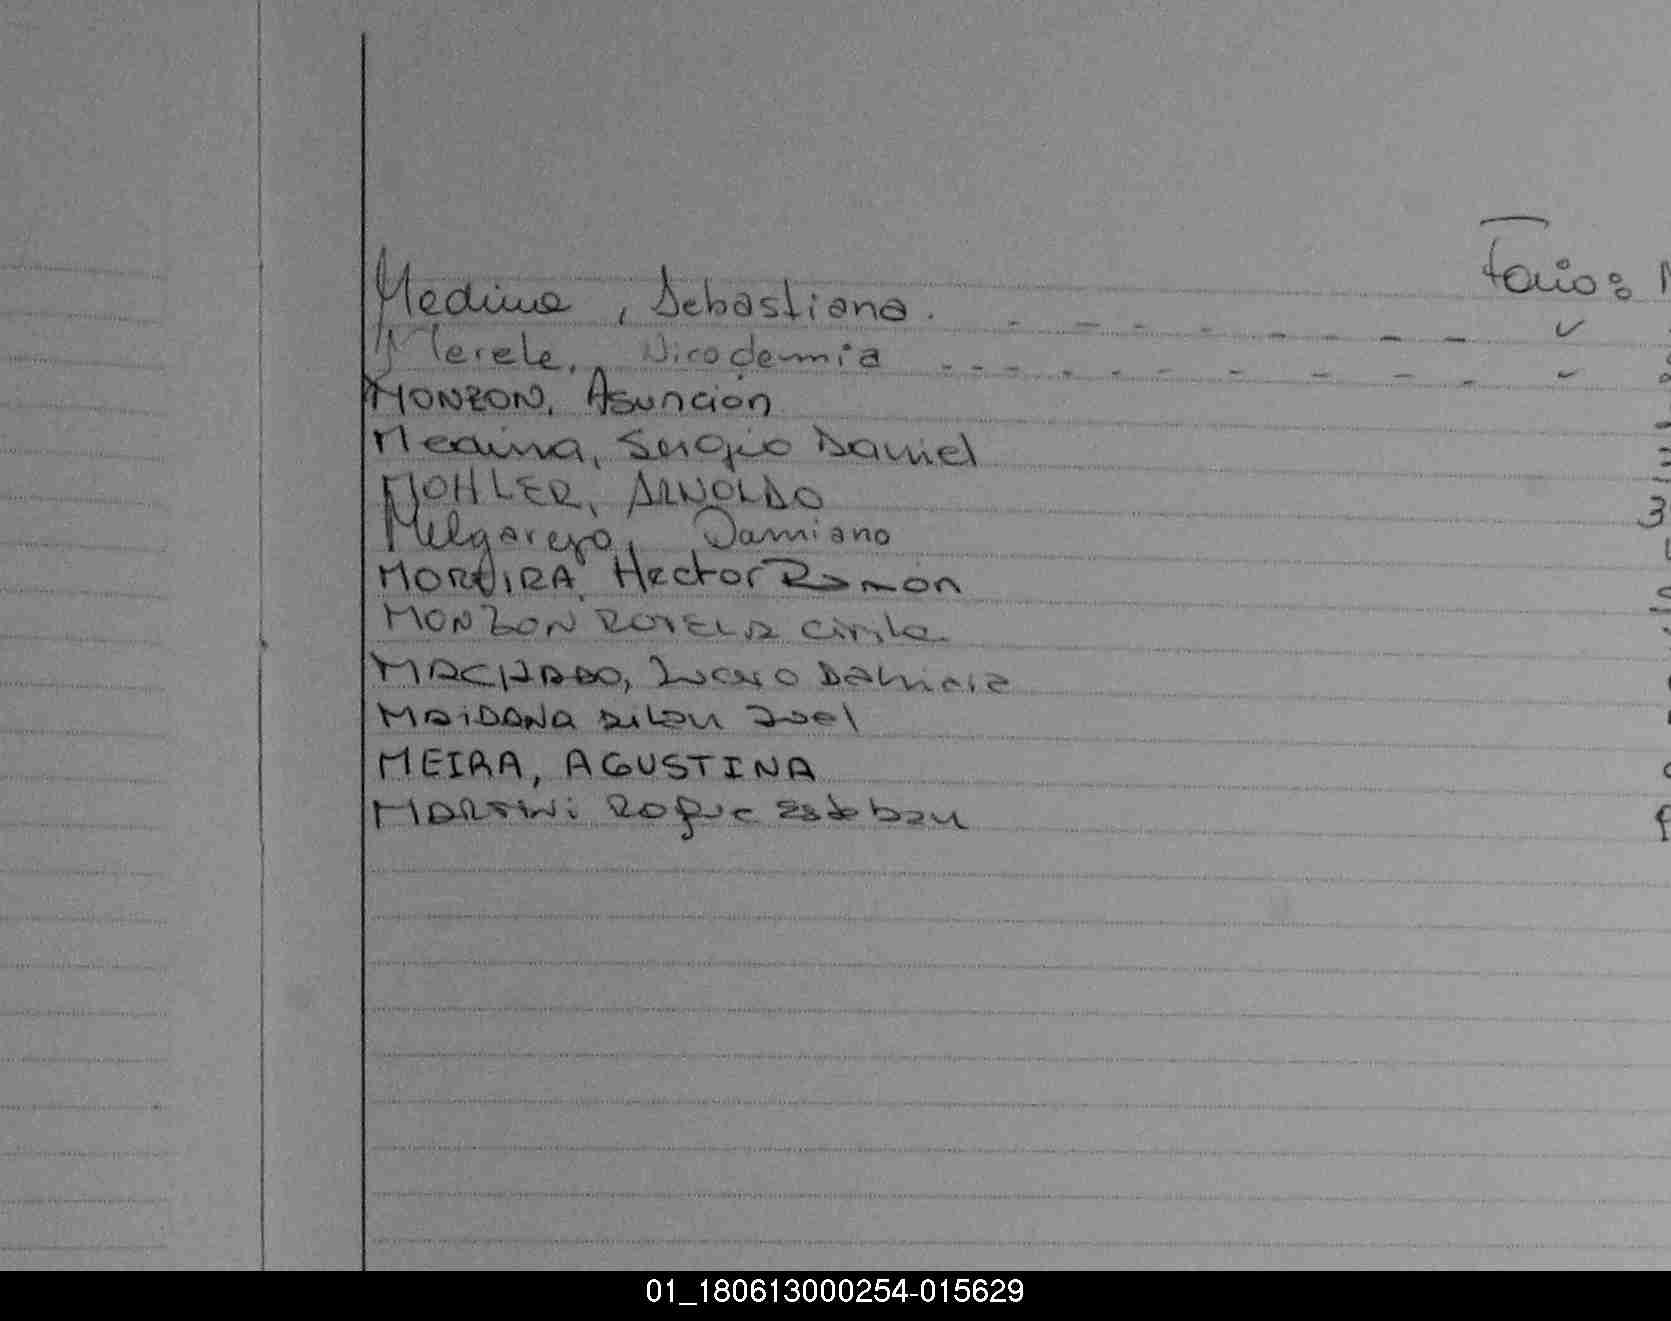 Folio: N
Medina, Sebastiana. - - - - - - - - ✓
Merele, Nicodemia - - - - - - - - - -
MONZON, Asunción
Medina, Sergio Daniel
MOHLER, ARNOLDO 3
Melgarejo, Damiano
MOREIRA, Hector Ramón
MONZON ROTELA Cirila
MACHADO, Damiela
MAIDANA Dilan Joel
MEIRA, AGUSTINA
MARTINI Roque Esteban
01_180613000254-015629